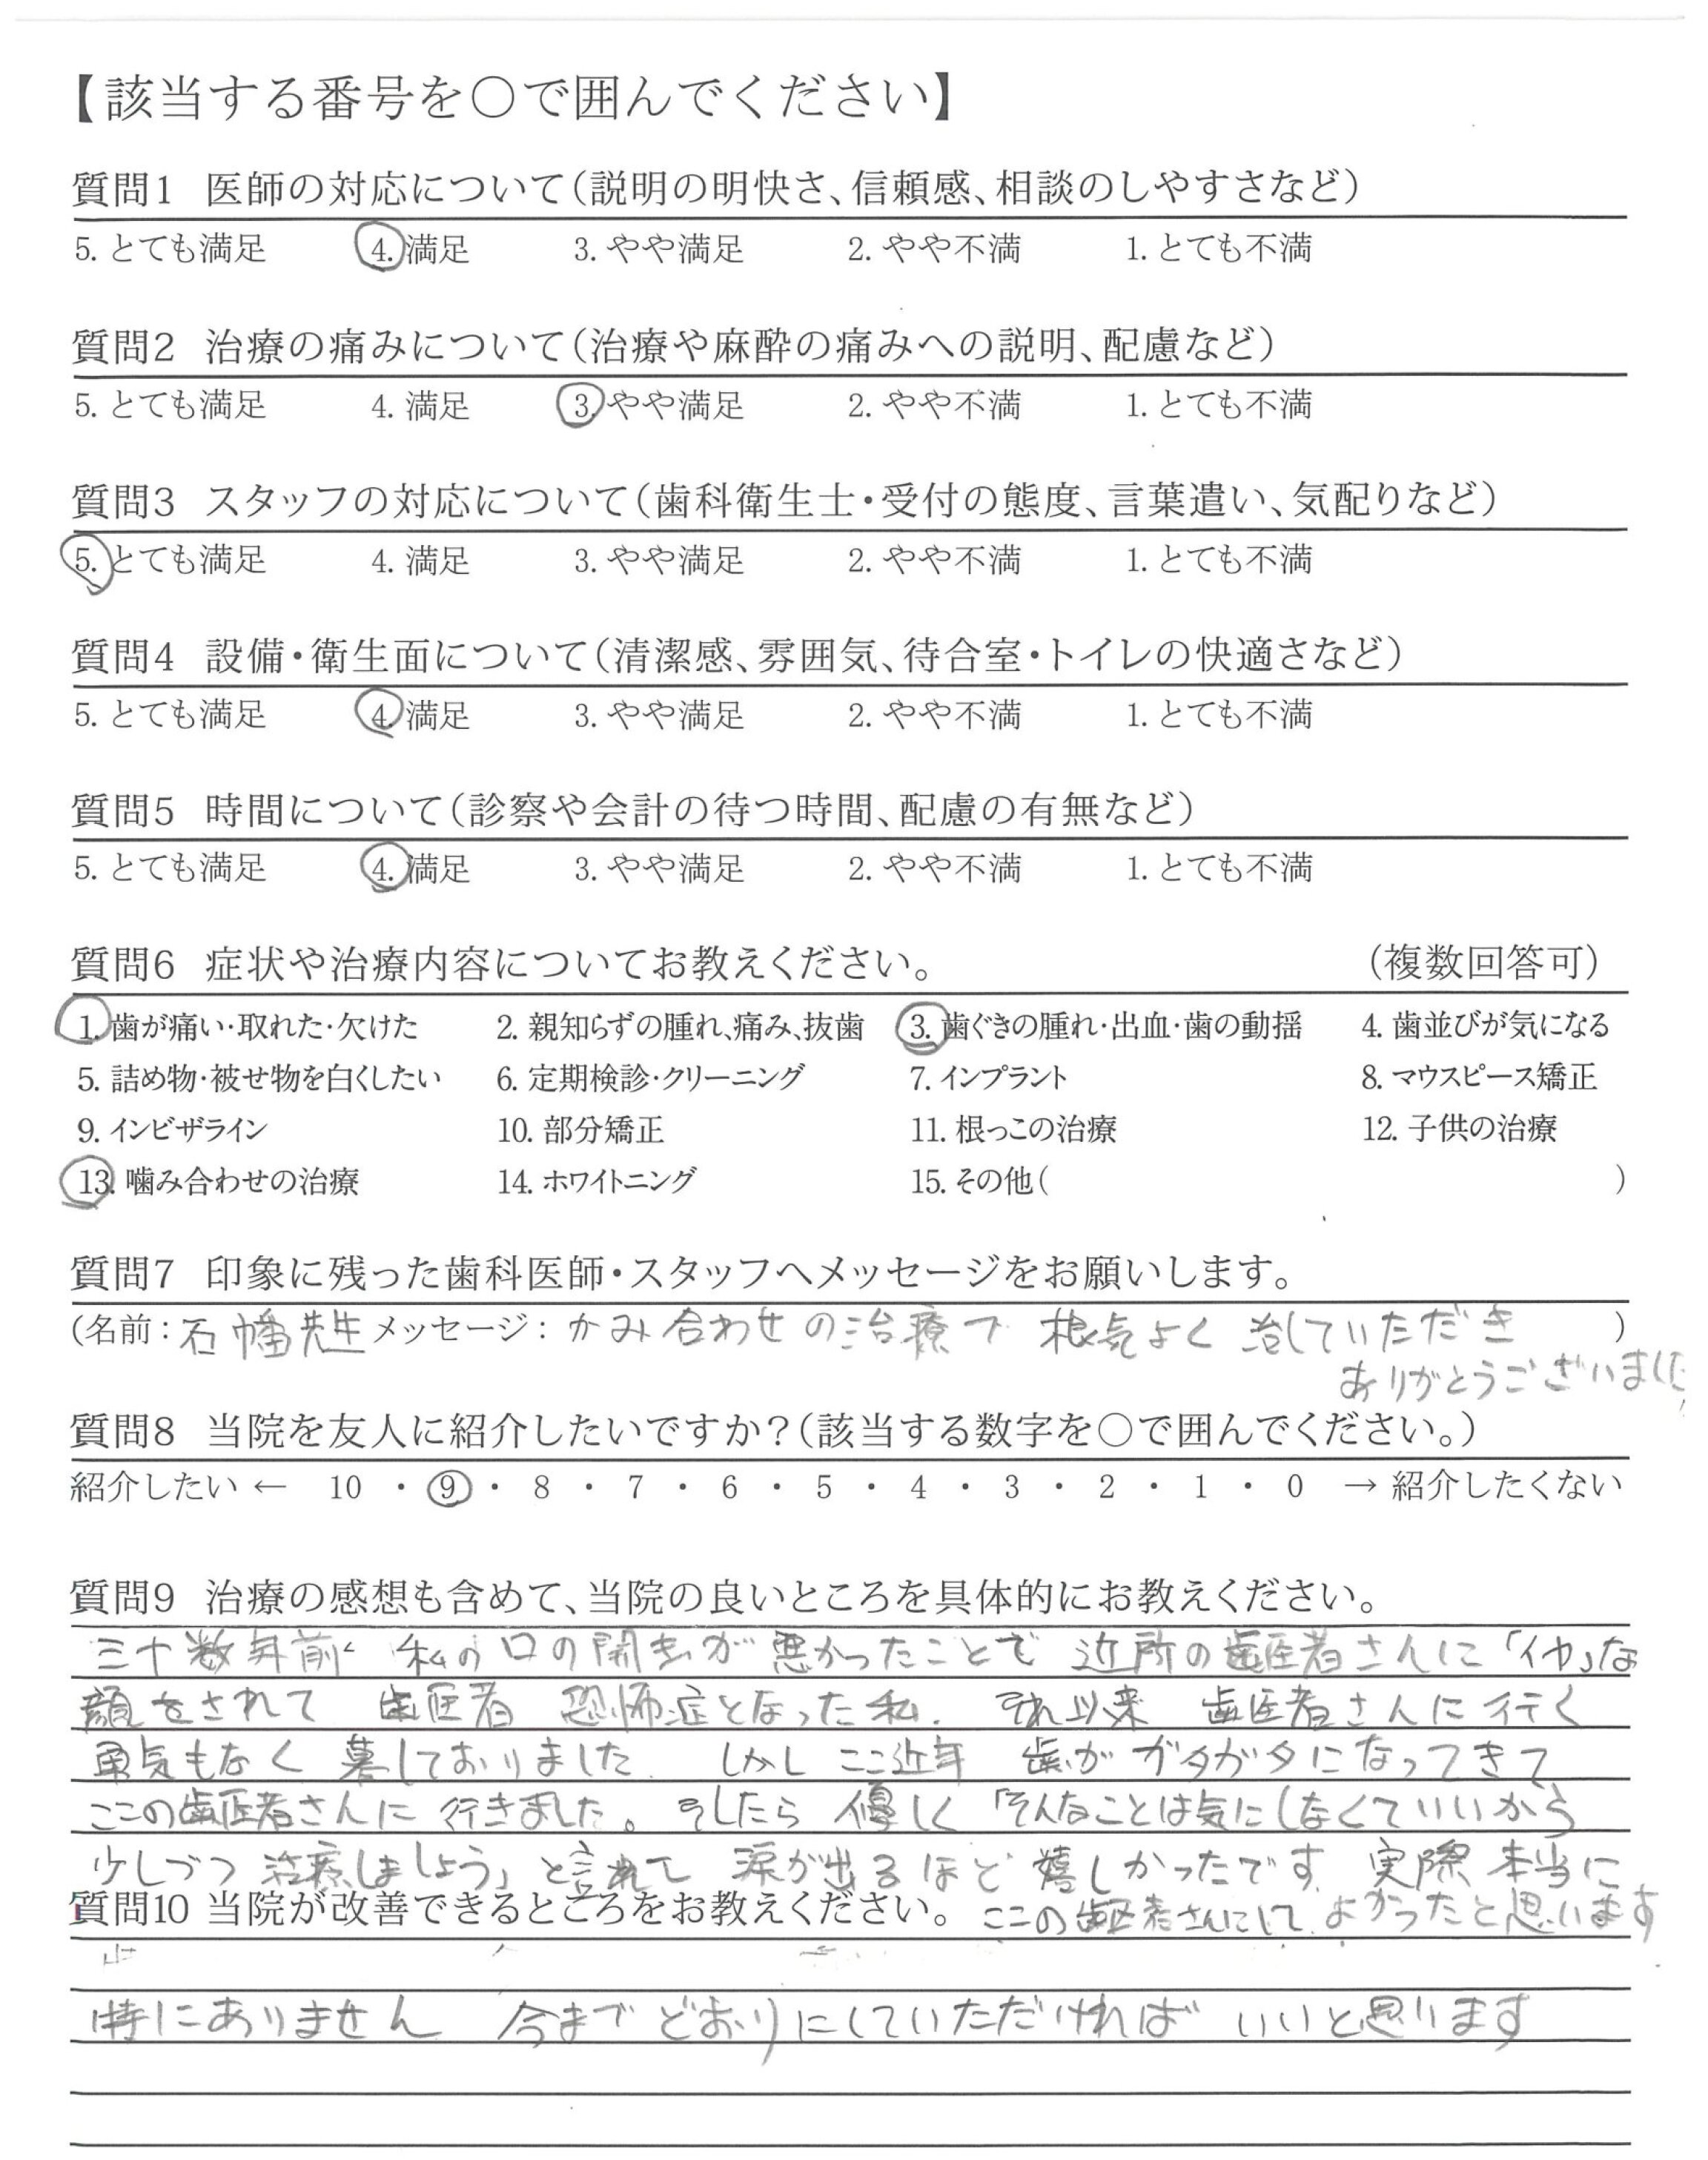 【該当する番号を○で囲んでください】
質問1 医師の対応について（説明の明快さ、信頼感、相談のしやすさなど）
5. とても満足 4. 満足 3. やや満足 2. やや不満 1. とても不満
質問2 治療の痛みについて（治療や麻酔の痛みへの説明、配慮など）
5. とても満足 4. 満足 3. やや満足 2. やや不満 1. とても不満
質問3 スタッフの対応について（歯科衛生士・受付の態度、言葉遣い、気配りなど）
5. とても満足 4. 満足 3. やや満足 2. やや不満 1. とても不満
質問4 設備・衛生面について（清潔感、雰囲気、待合室・トイレの快適さなど）
5. とても満足 4. 満足 3. やや満足 2. やや不満 1. とても不満
質問5 時間について（診察や会計の待つ時間、配慮の有無など）
5. とても満足 4. 満足 3. やや満足 2. やや不満 1. とても不満
質問6 症状や治療内容についてお教えください。 （複数回答可）
1. 歯が痛い・取れた・欠けた 2. 親知らずの腫れ、痛み、抜歯 3. 歯ぐきの腫れ・出血・歯の動揺 4. 歯並びが気になる
5. 詰め物・被せ物を白くしたい 6. 定期検診・クリーニング 7. インプラント 8. マウスピース矯正
9. インビザライン 10. 部分矯正 11. 根っこの治療 12. 子供の治療
13. 噛み合わせの治療 14. ホワイトニング 15. その他（ ）
質問7 印象に残った歯科医師・スタッフへメッセージをお願いします。
（名前：石幡先生 メッセージ：かみ合わせの治療で 根気よく 治していただき ）
ありがとうございました
質問8 当院を友人に紹介したいですか？（該当する数字を○で囲んでください。）
紹介したい ← 10 ・ 9 ・ 8 ・ 7 ・ 6 ・ 5 ・ 4 ・ 3 ・ 2 ・ 1 ・ 0 → 紹介したくない
質問9 治療の感想も含めて、当院の良いところを具体的にお教えください。
三十数年前 私の口の開きが悪かったことで 近所の歯医者さんに「イヤ」な
顔をされて 歯医者 恐怖症となった私. それ以来 歯医者さんに行く
勇気もなく 暮しておりました. しかし ここ近年 歯がガタガタになってきて
ここの歯医者さんに行きました。そしたら 優しく「そんなことは気にしなくていいから
少しづつ 治療しましょう」と言われて 涙が出るほど 嬉しかったです. 実際 本当に
質問10 当院が改善できるところをお教えください。 ここの歯医者さんにして よかったと思います
特にありません 今までどおりにしていただければ いいと思います